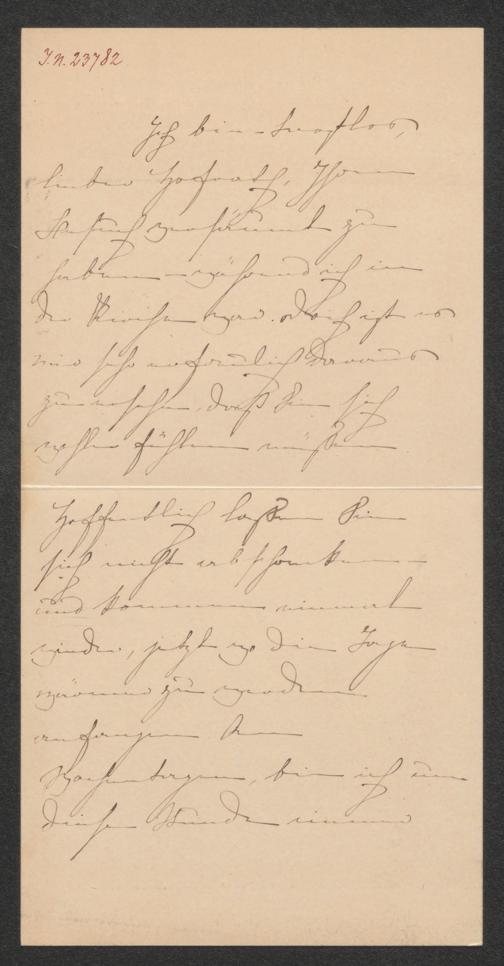 I.N. 23782
Ich bin trostlos,
lieber Hofrath, Ihren
Besuch versäumt zu
haben – während ich in
der Kirche war. Doch ist es
mir sehr erfreulich daraus
zu ersehen, daß Sie sich
wohler fühlen müßen
Hoffentlich laßen Sie
sich nicht abschrecken –
und kommen einmal
wieder, jetzt wo die Tage
wärmer zu werden
anfangen An
Wochentagen, bin ich um
diese Stunde immer